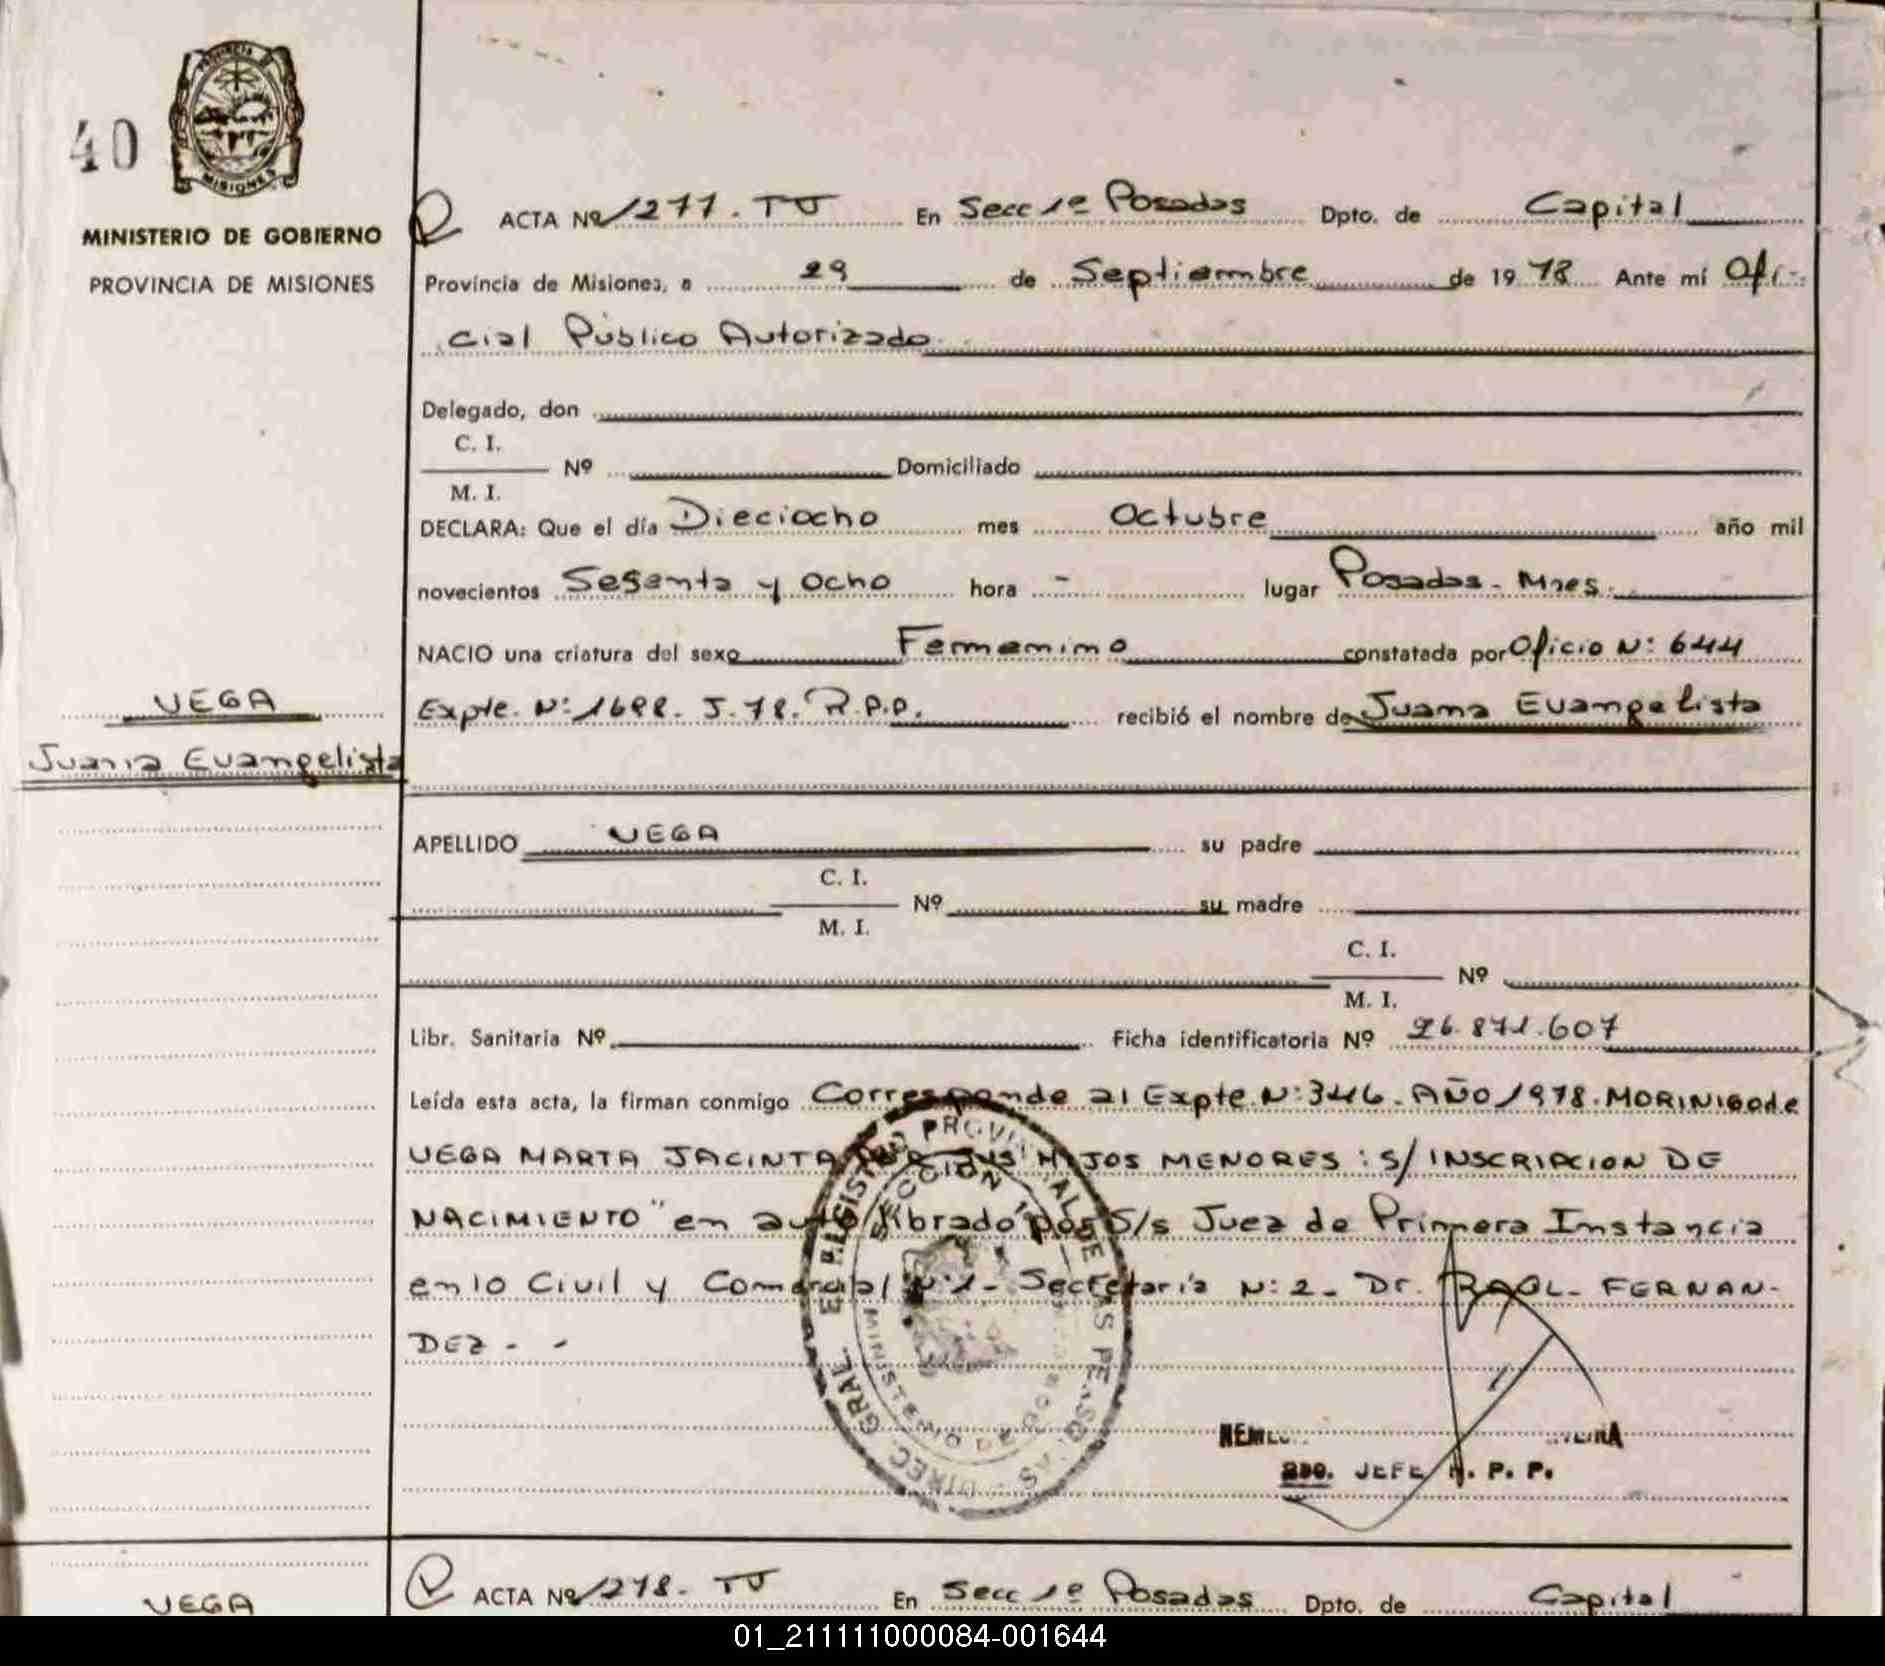 40
PROVINCIA DE
MISIONES
MINISTERIO DE GOBIERNO
PROVINCIA DE MISIONES
ACTA Nº 1277. TJ En Secc 1ª Posadas Dpto. de Capital
Provincia de Misiones, a 29 de Septiembre de 1978 Ante mí Ofi-
cial Público Autorizado
Delegado, don
C. I.
Nº Domiciliado
M. I.
DECLARA: Que el día Dieciocho mes Octubre año mil
novecientos Sesenta y Ocho hora - lugar Posadas - Mnes.
NACIO una criatura del sexo Femenino constatada por Oficio N: 644
Expte. N: 1698. J. 78. R.P.P. recibió el nombre de Juana Evangelista
VEGA
Juana Evangelista
APELLIDO VEGA su padre
C. I.
Nº su madre
M. I.
C. I.
Nº
M. I.
Libr. Sanitaria Nº Ficha identificatoria Nº 26.871.607
Leída esta acta, la firman conmigo Corresponde al Expte N: 346. AÑO 1978. MORINIGO de
VEGA MARTA JACINTA POR SUS HIJOS MENORES: S/INSCRIPCION DE
NACIMIENTO" en auto librado por S/s Juez de Primera Instancia
en lo Civil y Comercial Nº 1 - Secretaría N: 2 - Dr. RAUL - FERNAN-
DEZ - -
DIREC. GRAL. REGISTRO PROVINCIAL DE LAS PERSONAS
SECCION 1ª
MINISTERIO DE GOBIERNO
JEFE R. P. P.
ACTA Nº 1278. TJ En Secc 1ª Posadas Dpto. de Capital
VEGA
01_211111000084-001644